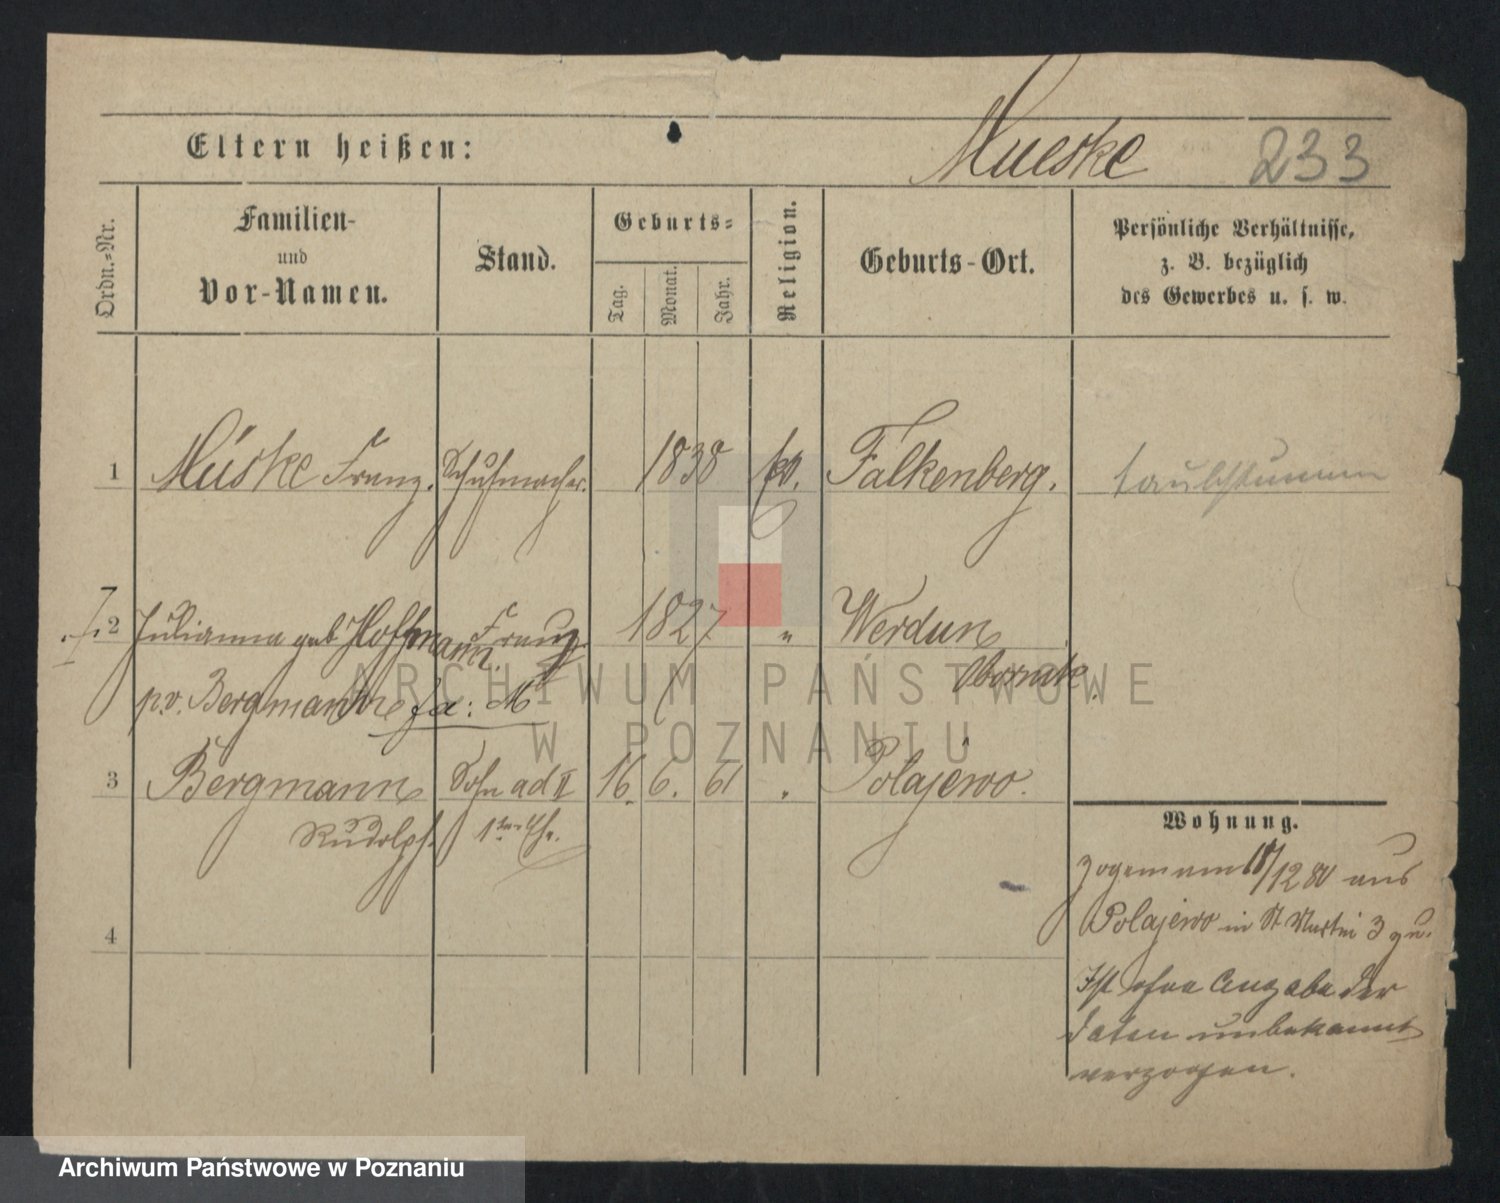 Eltern heißen:
Mueske 233
Ordn.-Nr.
Familien-
und
Vor-Namen.
Stand.
Geburts-
Tag.
Monat.
Jahr.
Religion.
Geburts-Ort.
Persönliche Verhältnisse,
z. B. bezüglich
des Gewerbes u. s. w.
1 Müske Franz. Schuhmacher. 1838 Falkenberg. taubstumm
2 Julianna geb Hoffmann. Frau 1827 " Werdun
Obornik.
p.v. Bergmann fa: M
3 Bergmann Sohn ad II 16. 6. 61 " Polajewo.
Rudolph. 1ter Ehe.
4
Wohnung.
zogen am 18/12 80 aus
Polajewo in St Martin 3 zu.
Ist ohne Angabe der
Daten unbekannt
verzogen.
ARCHIWUM PAŃSTWOWE
W POZNANIU
Archiwum Państwowe w Poznaniu